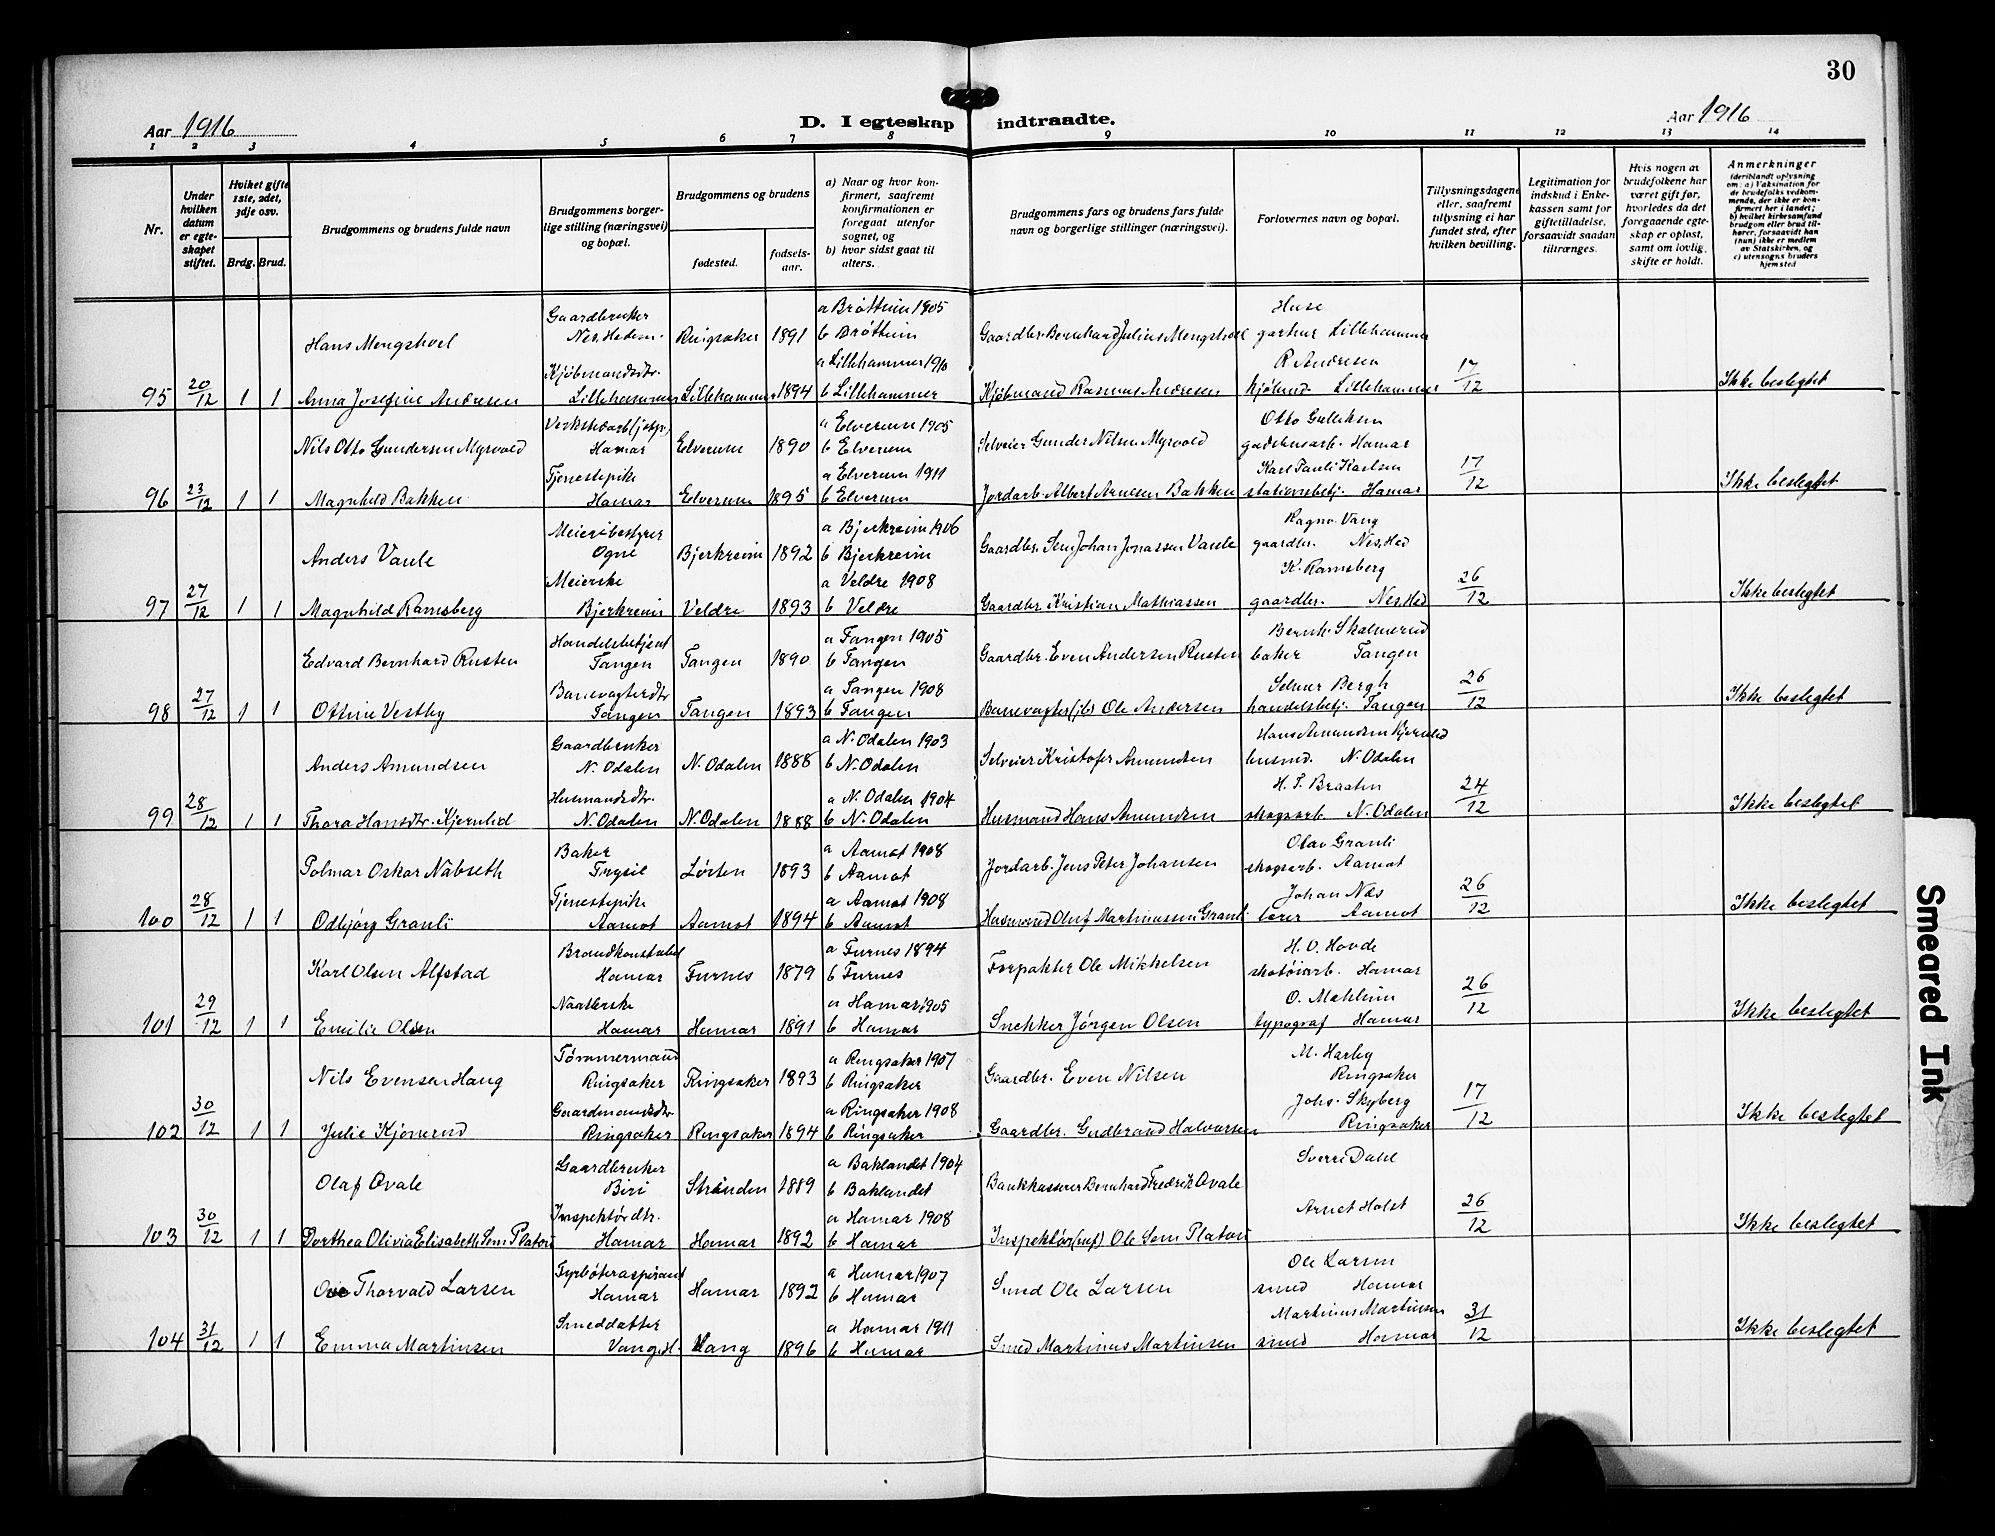 30
Aar 1916
D. I egteskap indtraadte.
Aar 1916
1 2 3 4 5 6 7 8 9 10 11 12 13 14
Nr.
Under hvilken datum er egteskapet stiftet.
Hvilket gifte 1ste, 2det, 3dje osv.
Brdg. Brud.
Brudgommens og brudens fulde navn
Brudgommens borgerlige stilling (næringsvei) og bopæl.
Brudgommens og brudens
fødested.
fødselsaar.
a) Naar og hvor konfirmert, saafremt konfirmationen er foregaat utenfor sognet, og
b) hvor sidst gaat til alters.
Brudgommens fars og brudens fars fulde navn og borgerlige stillinger (næringsvei).
Forlovernes navn og bopæl.
Tillysningsdagene eller, saafremt tillysning ei har fundet sted, efter hvilken bevilling.
Legitimation for indskud i Enkekassen samt for giftetilladelse, forsaavidt saadan tiltrænges.
Hvis nogen av brudefolkene har været gift før, hvorledes da det foregaaende egteskap er opløst, samt om lovlig skifte er holdt.
Anmerkninger (deriblandt oplysning om: a) Vaksination for de brudefolks vedkommende, der ikke er konfirmert her i landet; b) hvilket kirkesamfund brudgom eller brud tilhører, forsaavidt han (hun) ikke er medlem av Statskirken, og c) utensogns bruders hjemsted
Hans Mengshoel Gaardbruker Nes, Hedm. Ringsaker 1891 a Brøttum 1905 b Brøttum Gaardbr. Bernhard Julius Mengshoel Huse gartner Lillehammer
95 20/12 1 1 Anna Josefine Andresen Kjøbmandsdtr. Lillehammer Lillehammer 1894 a Lillehammer 1910 b Lillehammer Kjøbmand Rasmus Andresen R Andresen kjøbmd. Lillehammer 17/12 Ikke beslegtet
Nils Otto Gundersen Myrvold Hamar Elverum 1890 a Elverum 1905 b Elverum Selveier Gunder Nilsen Myrvold Otto Gulliksen gadehusarb. Hamar
96 23/12 1 1 Magnhild Bakken Tjenestepike Hamar Elverum 1895 a Elverum 1911 b Elverum Jordarb. Albert Arnesen Bakken Karl Pauli Karlsen stationsbetj. Hamar 17/12 Ikke beslegtet
Anders Vaule Meieribestyrer Ogne Bjerkreim 1892 a Bjerkreim 1906 b Bjerkreim Gaardbr. Sem Johan Jonassen Vaule Ragnv. Vang gaardbr. Nes, Hed
97 27/12 1 1 Magnhild Ramsberg Meierske Bjerkreim Veldre 1893 a Veldre 1908 b Veldre Gaardbr. Kristian Mathiassen K. Ramsberg gaardbr. Nes, Hed 26/12 Ikke beslegtet
Edvard Bernhard Rusten Handelsbetjent Tangen Tangen 1890 a Tangen 1905 b Tangen Gaardbr. Even Andersen Rusten Bernh. Skalmerud baker Tangen
98 27/12 1 1 Othine Vestby Banevagterdtr Tangen Tangen 1893 a Tangen 1908 b Tangen Banevagter (jb) Ole Andersen Selmer Bergh handelsbetj. Tangen 26/12 Ikke beslegtet
Anders Amundsen Gaardbruker N. Odalen N. Odalen 1888 a N. Odalen 1903 b N. Odalen Selveier Kristofer Amundsen Hans Amundsen Kjernlid husmd. N. Odalen
99 28/12 1 1 Thora Hansdtr. Kjernlid Husmandsdtr. N. Odalen N. Odalen 1888 a N. Odalen 1904 b N. Odalen Husmand Hans Amundsen H. T. Braaten skogsarb. N. Odalen 24/12 Ikke beslegtet
Polmar Oskar Nabseth Baker Trysil Løiten 1893 a Aamot 1908 b Aamot Jordarb. Jens Peter Johansen Olav Granli skogsarb. Aamot
100 28/12 1 1 Odbjørg Granli Tjenestepike Aamot Aamot 1894 a Aamot 1908 b Aamot Husmand Oluf Martinussen Granli Johan Næs lærer Aamot 26/12 Ikke beslegtet
Karl Olsen Alfstad Brandkonstabel Hamar Furnes 1879 a Furnes 1894 b Furnes Forpakter Ole Mikkelsen H. O. Hovde skotøiarb. Hamar
101 29/12 1 1 Emilie Olsen Naatlerske Hamar Hamar 1891 a Hamar 1905 b Hamar Snekker Jörgen Olsen O. Mæhlum typograf Hamar 26/12 Ikke beslegtet
Nils Evensen Haug Tømmermand Ringsaker Ringsaker 1893 a Ringsaker 1907 b Ringsaker Gaardbr. Even Nilsen M. Harby Ringsaker
102 30/12 1 1 Julie Kjønerud Gaardmandsdtr Ringsaker Ringsaker 1894 a Ringsaker 1908 b Ringsaker Gaardbr. Gudbrand Halvorsen Johs. Skyberg Ringsaker 17/12 Ikke beslegtet
Olaf Ovale Gaardbruker Biri Stranden 1889 a Baklandet 1904 b Baklandet Bankkasserer Bernhard Fredrik Ovale Sverre Dahl
103 30/12 1 1 Dorthea Olivia Elisabeth Sem Platou Inspektørdtr. Hamar Hamar 1892 a Hamar 1908 b Hamar Inspektør Ole Sem Platou Arnet Holst 26/12 Ikke beslegtet
Ove Thorvald Larsen Fyrbøteraspirant Hamar Hamar 1892 a Hamar 1907 b Hamar Smed Ole Larsen Ole Larsen smed Hamar
104 31/12 1 1 Emma Martinsen Smeddatter Vang, H. Vang 1896 a Hamar 1911 b Hamar Smed Martinus Martinsen Martinus Martinsen smed Hamar 31/12 Ikke beslegtet
Smeared Ink